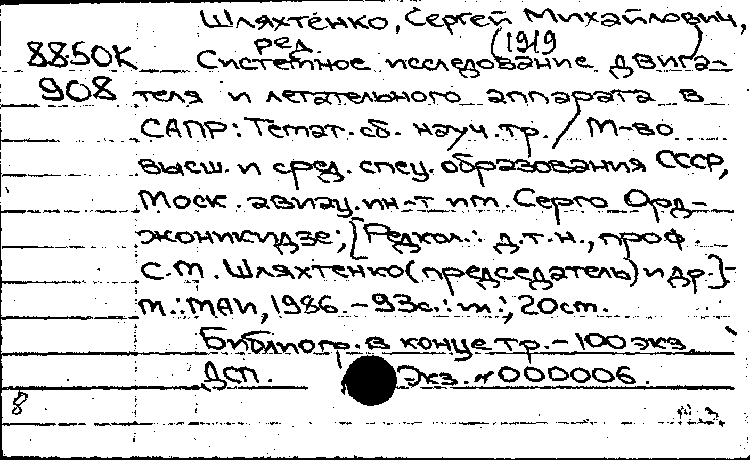 Шляхтенко, Сергей Михайлович,
ред. (1919 )
8850К Системное исследование двига-
908 теля и летательного аппарата в
САПР: Темат. сб. науч. тр. / М-во
высш. и сред. спец. образования СССР,
Моск. авиац. ин-т им. Серго Орд-
жоникидзе; [Редкол.: д.т.н., проф.
С.М. Шляхтенко (председатель) и др.]-
М.: МАИ, 1986. - 93с.: ил.; 20см.
Библиогр. в конце тр. - 100 экз.
ДСП. Экз. № 000006.
8